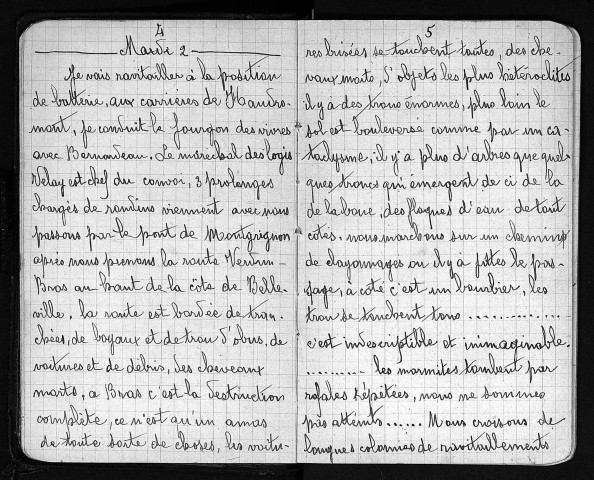 4
Mardi 2
Je vais ravitailler à la position
de batterie, aux carrières de Haudro-
mont, je conduit le fourgon des vivres
avec Bernardeau. Le maréchal des logis
Velay est chef du convoi, 3 prolonges
chargés de rondins viennent avec nous
passons par le pont de Montgrignon
apres nous prenons la route Verdun-
Bras au haut de la côte de Belle-
ville. la route est bordée de tran-
chées, de boyaux et de trou d'obus, de
voitures et de débris, des cheveaux
morts, a Bras c'est la destruction
complète, ce n'est qu'un amas
de toute sorte de choses, les voitu-
5
res brisées se touchent toutes, des che-
vaux morts, d'objets les plus hétéroclites
il y a des trous énormes, plus loin le
sol est bouleversé comme par un ca-
taclysme, il y'a plus d'arbres que quel-
ques troncs qui émergent de ci de la
de la boue, des flaques d'eau de tout
cotés. nous marchons sur un chemin
de clayonnages ou il y a juste le pas-
sage, à côté c'est un bourbier, les
trou se touchent tous ...............
c'est indescriptible et inimaginable.
........... les marmites tombent par
rafales répétées, nous ne sommes
pas atteints ...... Nous croisons de
longues colonnes de ravitaillements